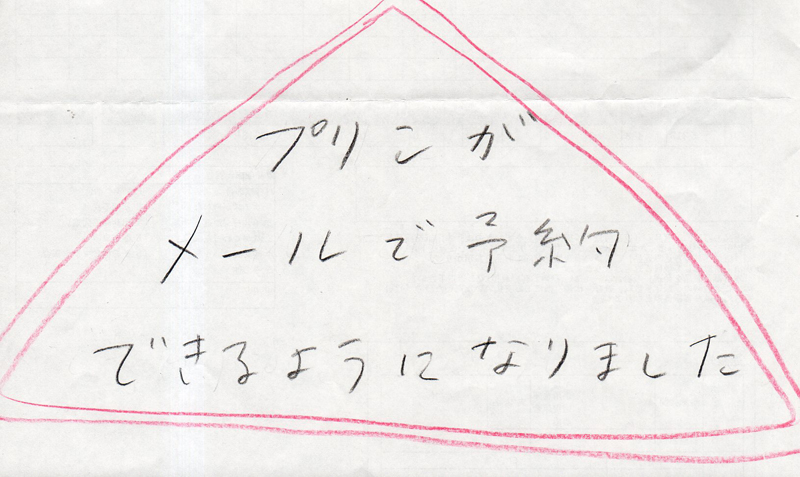 プリンが
メールで予約
できるようになりました